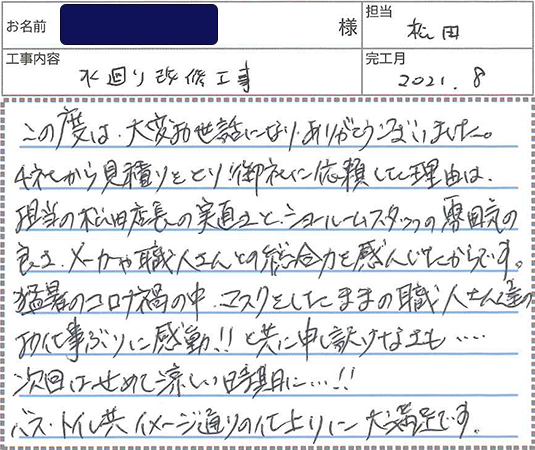 お名前 様 担当 松田
工事内容 水廻り改修工事 完工月 2021.8
この度は、大変お世話になり、ありがとうございました。
4社から見積りをとり、御社に依頼した理由は、
担当の松田店長の実直さと、ショールームスタッフの雰囲気の
良さ、メーカや職人さんとの総合力を感んじたからです。
猛暑のコロナ禍の中、マスクをしたままの職人さん達の
お仕事ぶりに感動!! と共に申し訳けなさも….
次回はせめて涼しい時期に…!!
バス・トイレ共イメージ通りの仕上りに大満足です。